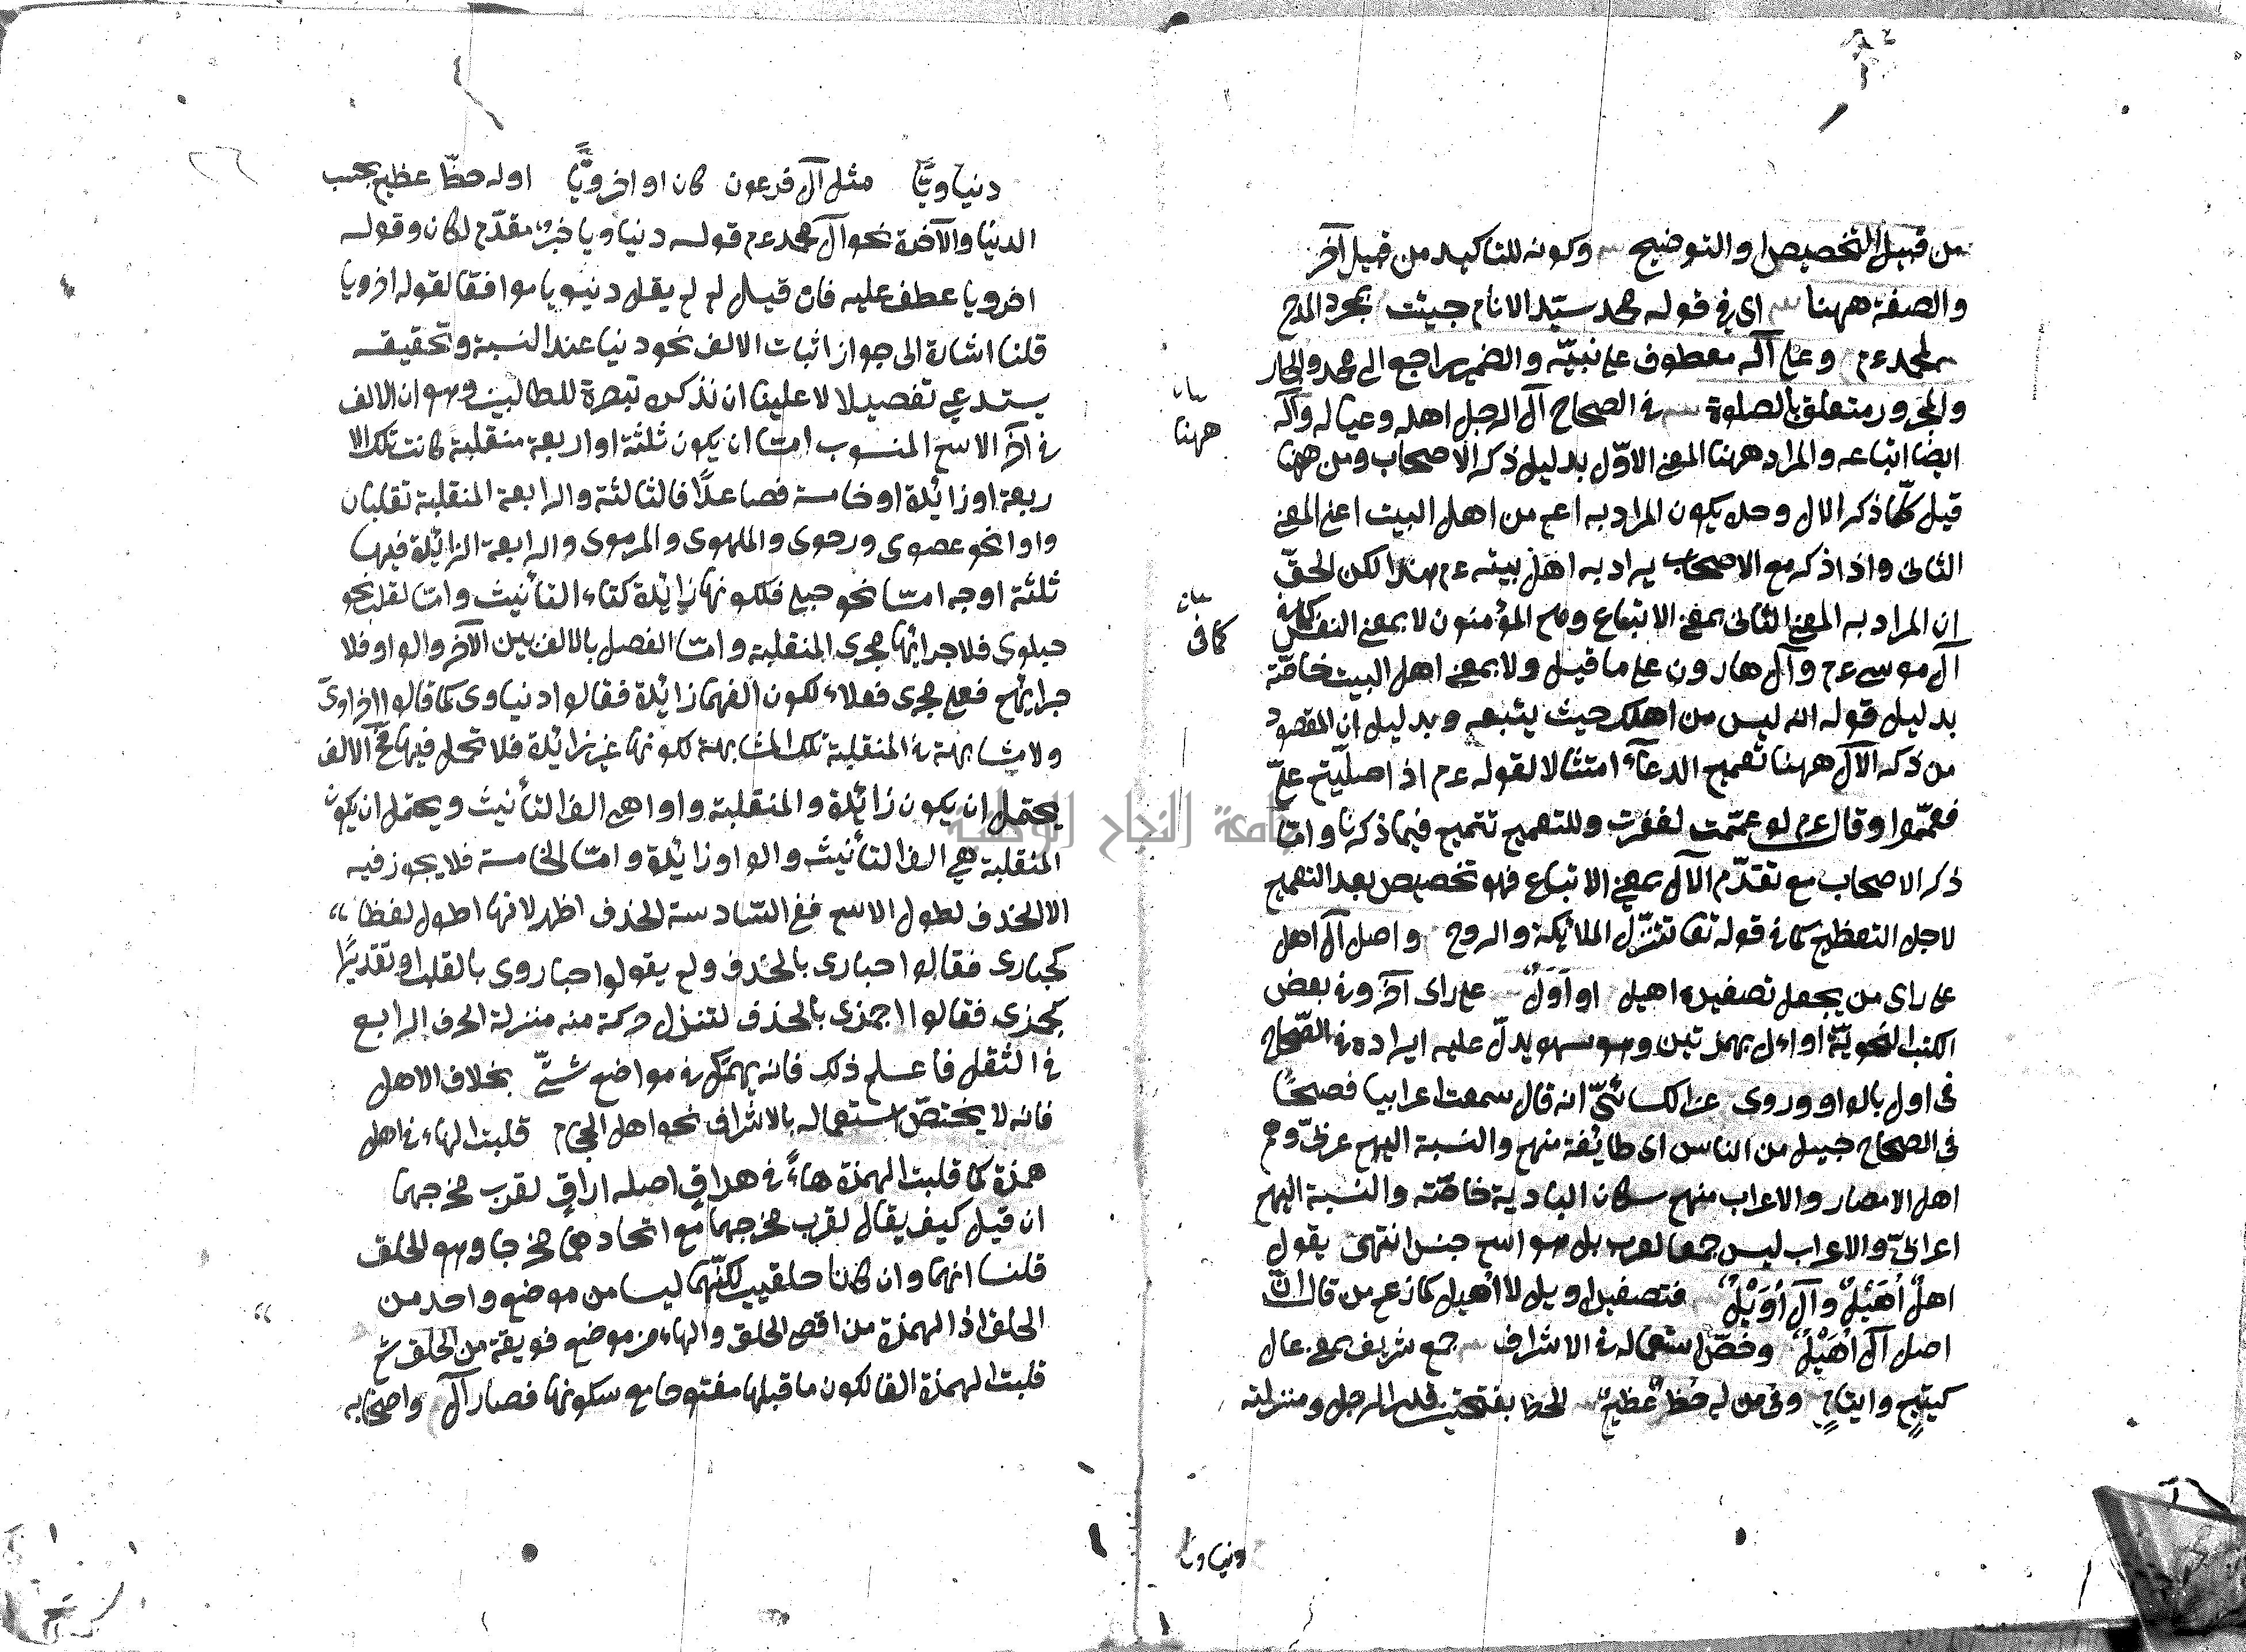 من قبيل التخصيص او التوضيح وكونه للتاكيد من قبيل آخر
والصفة ههنا اى فى قوله محمد سيّد الانام جيئت لمجرد المدح
لمحمد عم وعلى آله معطوف على نبيّه والضمير راجع الى محمد والجار
والمجرور متعلق بالصلوة فى الصحاح آل الرجل اهله وعياله وآله
ايضا اتباعه والمراد ههنا المعنى الاوّل بدليل ذكر الاصحاب ومن ههنا
قيل كلّما ذكر الال وحده يكون المراد به اعم من اهل البيت اعنى المعنى
الثانى واذا ذكر مع الاصحاب يراد به اهل بيته عم هذا لكن الحقّ
ان المراد به المعنى الثانى بمعنى الاتباع وهم المؤمنون لا بمعنى النفس كما فى
آل موسى عم وآل هارون على ما قيل ولا بمعنى اهل البيت خاصّة
بدليل قوله انه ليس من اهلك حيث يتبعه وبدليل ان المقصود
من ذكر الآل ههنا تعميم الدعآء امتثالا لقوله عم اذا صليتم علىّ
فعمّموا وقال عم لو عمّمت لغفرت وللتعميم تتميم فيما ذكرنا وامّا
ذكر الاصحاب مع تقدّم الآل بمعنى الاتباع فهو تخصيص بعد التعميم
لاجل التعظيم كما فى قوله تعا تنزّل الملائكة والروح واصل آل اهل
على راى من يجعل تصغيره اهيل او أوَلٌ على راى آخر وفى بعض
الكتب النحويّة اواءل بهمزتين وهو سهو يدلّ عليه ايراده فى الصّحاح
فى اول بالواو وروى عن الكسائىّ انه قال سمعت اعرابيا فصيحًا
فى الصحاح جيل من الناس اى طائفة منهم والنسبة اليهم عربىّ وهم
اهل الامصار والاعراب منهم سكان البادية خاصّة والنسبة اليهم
اعرابىّ والاعراب ليس جمعا لعرب بل هو اسم جنس انتهى يقول
اهلٌ أُهَيْلٌ وآل أُوَيْلٌ فتصغير اويل لا أهيل كما زعم من قال انّ
اصل آل أُهَيْلٌ وخصّ استعماله فى الاشراف جمع شريف بمعنى عال
كيتيم وايتامٍ وفى من له حظٌ عظيمٌ الخط بفتحتين قدر الرجل ومنزلته
ههنا
كما فى
دنياويّا
دنياويًّا مثل آل فرعون كان او اخرويًّا اوله حظّ عظيم بحسب
الدنيا والآخرة نحو آل محمد عم قوله دنياويا خبر مقدّم لكان وقوله
اخرويا عطف عليه فان قيل لم لم يقل دنيويا موافقا لقوله اخرويا
قلنا اشارة الى جواز اثبات الالف نحو دنيا عند النسبة وتحقيقه
يستدعى تفصيلا لا علينا ان نذكره تبصرة للطالبين وهو ان الالف
فى آخر الاسم المنسوب امّا ان يكون ثلثة او اربعة منقلبة كانت تلك الا
ربعة او زائدة او خامسة فصاعدًا فالثالثة والرابعة المنقلبة تقلبان
واوا نحو عصوى ورحوى والملهوى والمرموى والرابعة الزائدة فيها
ثلثة اوجه امّا نحو حبلى فلكونها زائدة كتاء التأنيث وامّا لقلب نحو
حبلوى فلاجرائها مجرى المنقلبة وامّا الفصل بالالف بين الآخر والواو فلا
جرائهم فعلى مجرى فعلاء لكون الفهما زائدة فقالوا دنياوى كما قالوا
ولا مشابهة فى المنقلبة تلك المشابهة لكونها غير زائدة فلا تحمل فيها الالف
يحتمل ان يكون زائدة والمنقلبة واوا هى الف التأنيث ويحتمل ان يكون
المنقلبة هى الف التأنيث والواو زائدة وامّا الخامسة فلا يجوز فيه
الا الحذف لطول الاسم ففى السّادسة الحذف اظهر لانها اطول لفظا
كحبارى فقالوا حبارى بالحذف ولم يقولوا حباروى بالقلب او تقديرًا
كجمزى فقالوا جمزى بالحذف لتنزل حركة منه منزلة الحرف الرابع
فى الثقل فاعلم ذلك فانه يهمّك فى مواضع شتّى بخلاف الاهل
فانه لا يختصّ استعماله بالاشراف نحو اهل الحجام قلبت الهاء فى اهل
همزة كما قلبت الهمزة هاءً فى هراق اصله اراق لقرب مخرجهما
ان قيل كيف يقال لقرب مخرجهما مع اتحادهما مخرجا وهو الحلق
قلنا انهما وان كانا حلقيين لكنّهما ليسا من موضع واحد من
الحلق اذ الهمزة من اقصى الحلق والهاء من موضع فويقة من الحلق ثم
قلبت الهمزة الفا لكون ما قبلها مفتوحا مع سكونها فصار آل واصحابه
جامعة النجاح الوطنية